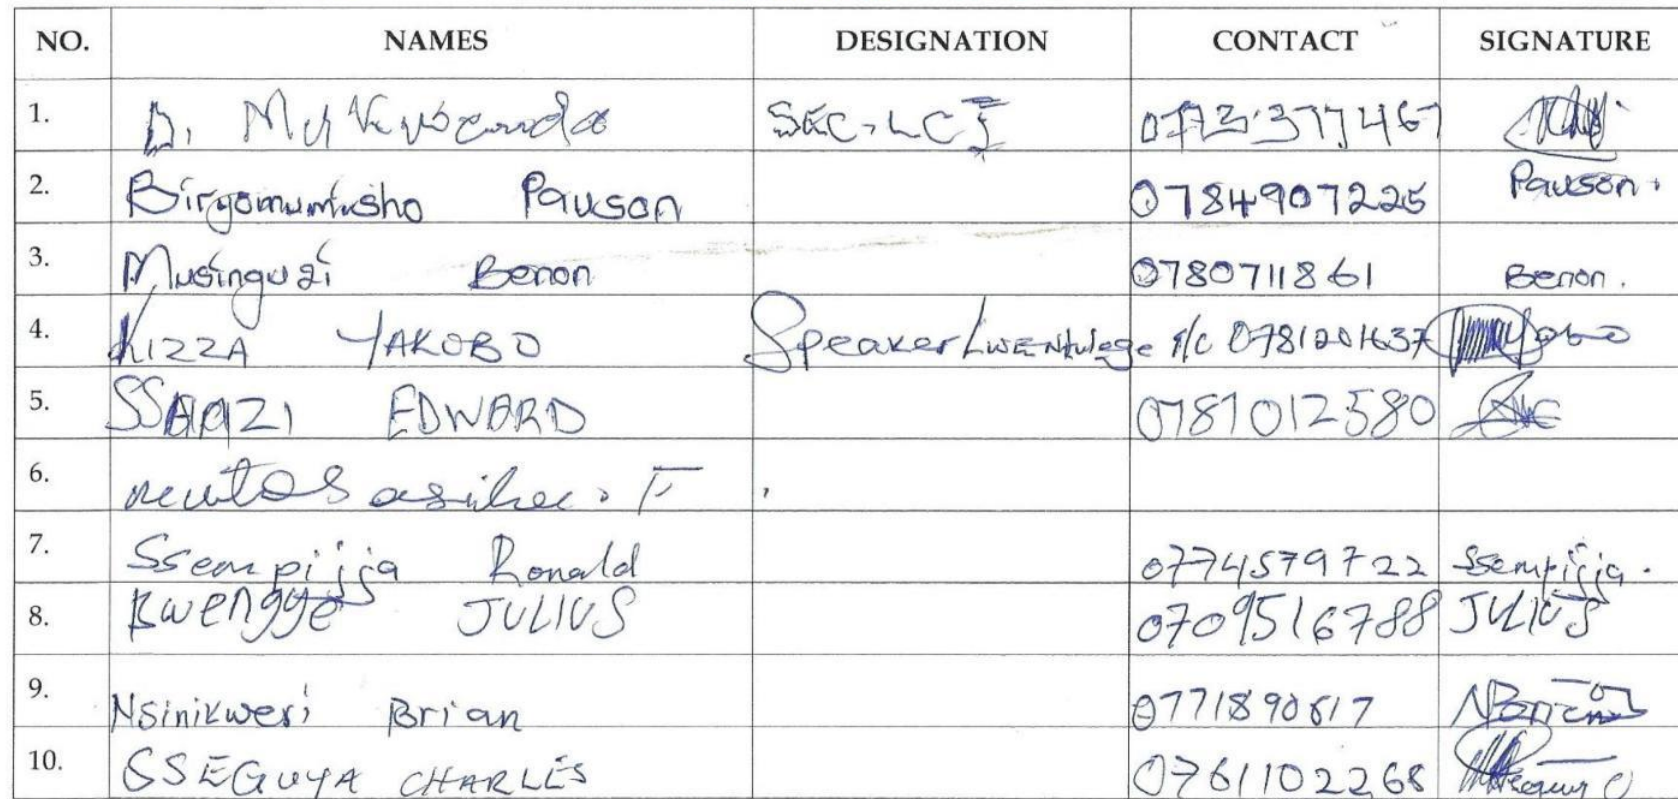 NO. NAMES DESIGNATION CONTACT SIGNATURE
1. D. SEC-LCI 0773377467
2. Biryomumisho Pauson 0784907225 Pauson.
3. Musinguzi Benon 0780711861 Benon.
4. KIZZA YAKOBO Speaker T/C
5. SSAAZI EDWARD 0781012580
6.
7. Ssempijja Ronald 0774579722 Ssempijja.
8. Bwengye JULIUS 0709516788 JULIUS
9. Nsinikweri Brian 0771890617
10. SSEGUYA CHARLES 0761102268